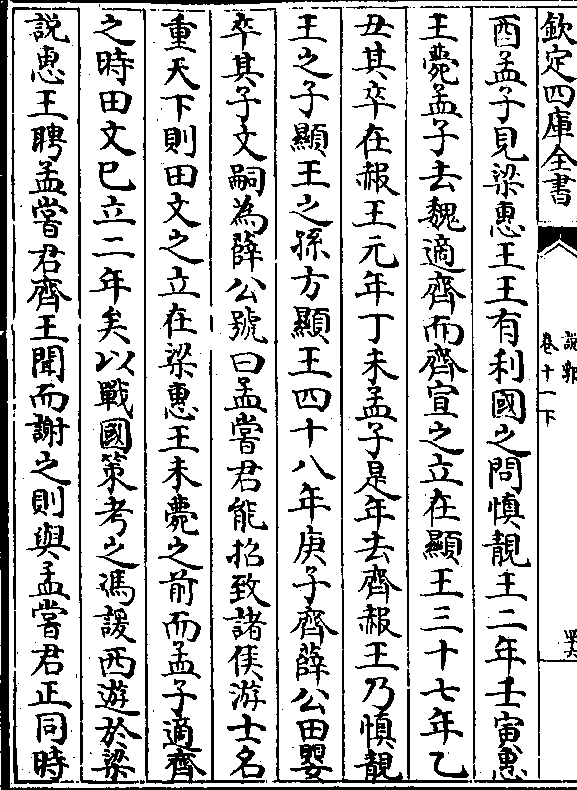 欽定四庫全書
說郛
卷十一下
酉孟子見梁惠王王有利國之問慎靚王二年壬寅惠
王薨孟子去魏適齊而齊宣之立在顯王三十七年乙
丑其卒在赧王元年丁未孟子是年去齊赧王乃慎靚
王之子顯王之孫方顯王四十八年庚子齊薛公田嬰
卒其子文嗣為薛公號曰孟嘗君能招致諸侯游士名
重天下則田文之立在梁惠王未薨之前而孟子適齊
之時田文已立二年矣以戰國策考之馮諼西遊於梁
說惠王聘孟嘗君齊王聞而謝之則與孟嘗君正同時